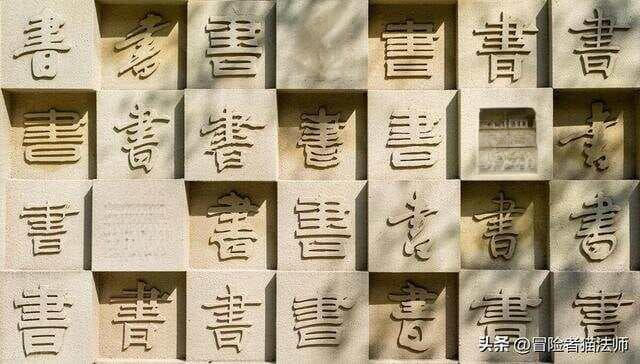 書書書書書書
書書書書書書
書書書書書書
書書書書書書書
头条 @冒险者猫法师